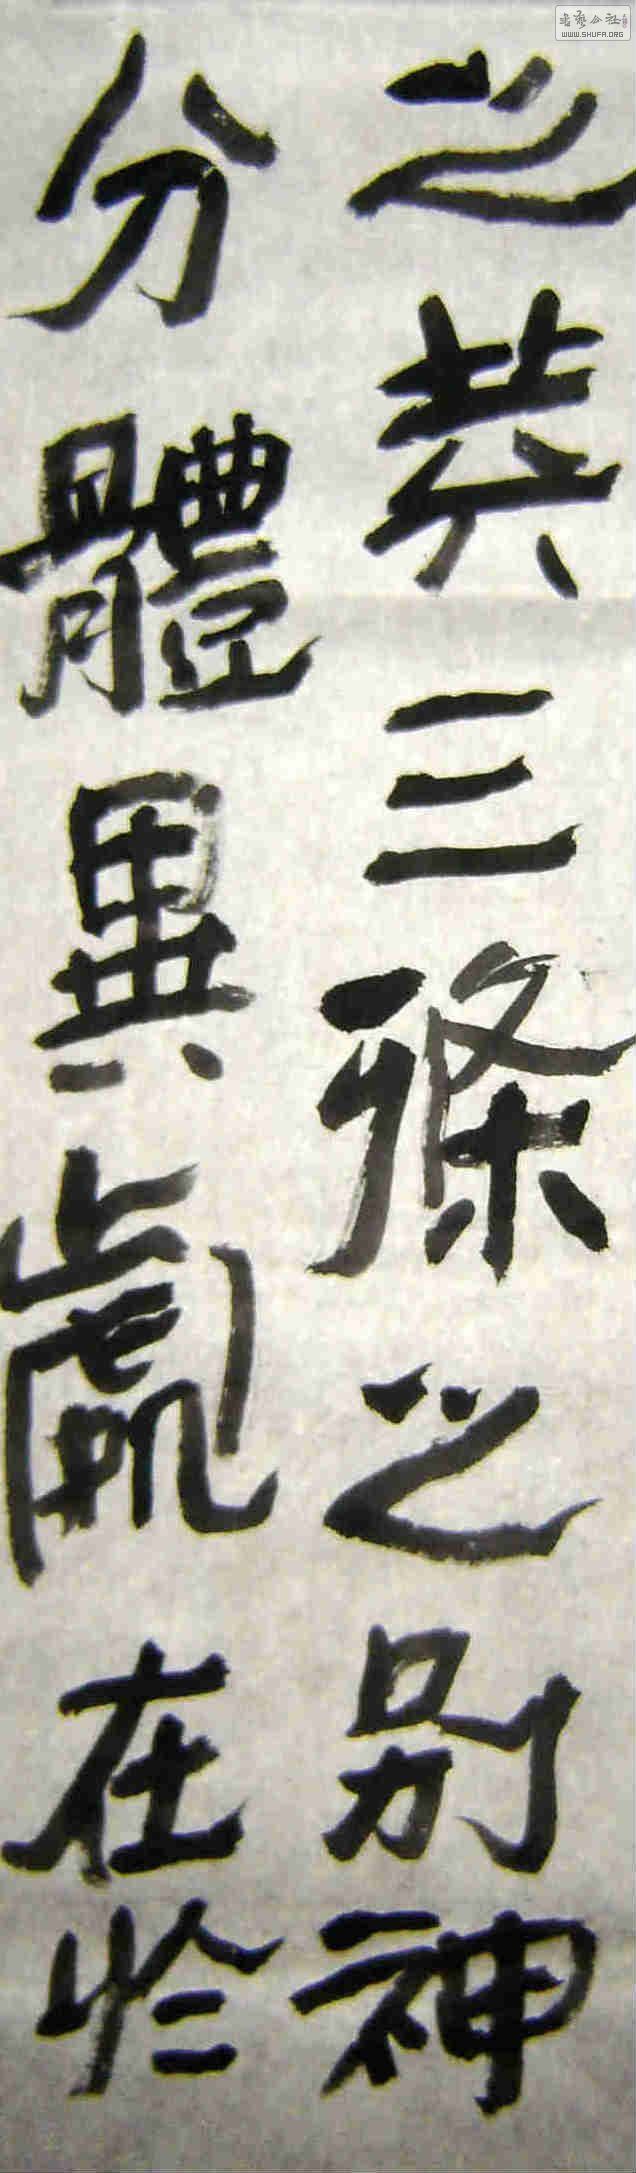 之三條之別神
分體異處在於
書藝公社
WWW.SHUFA.ORG